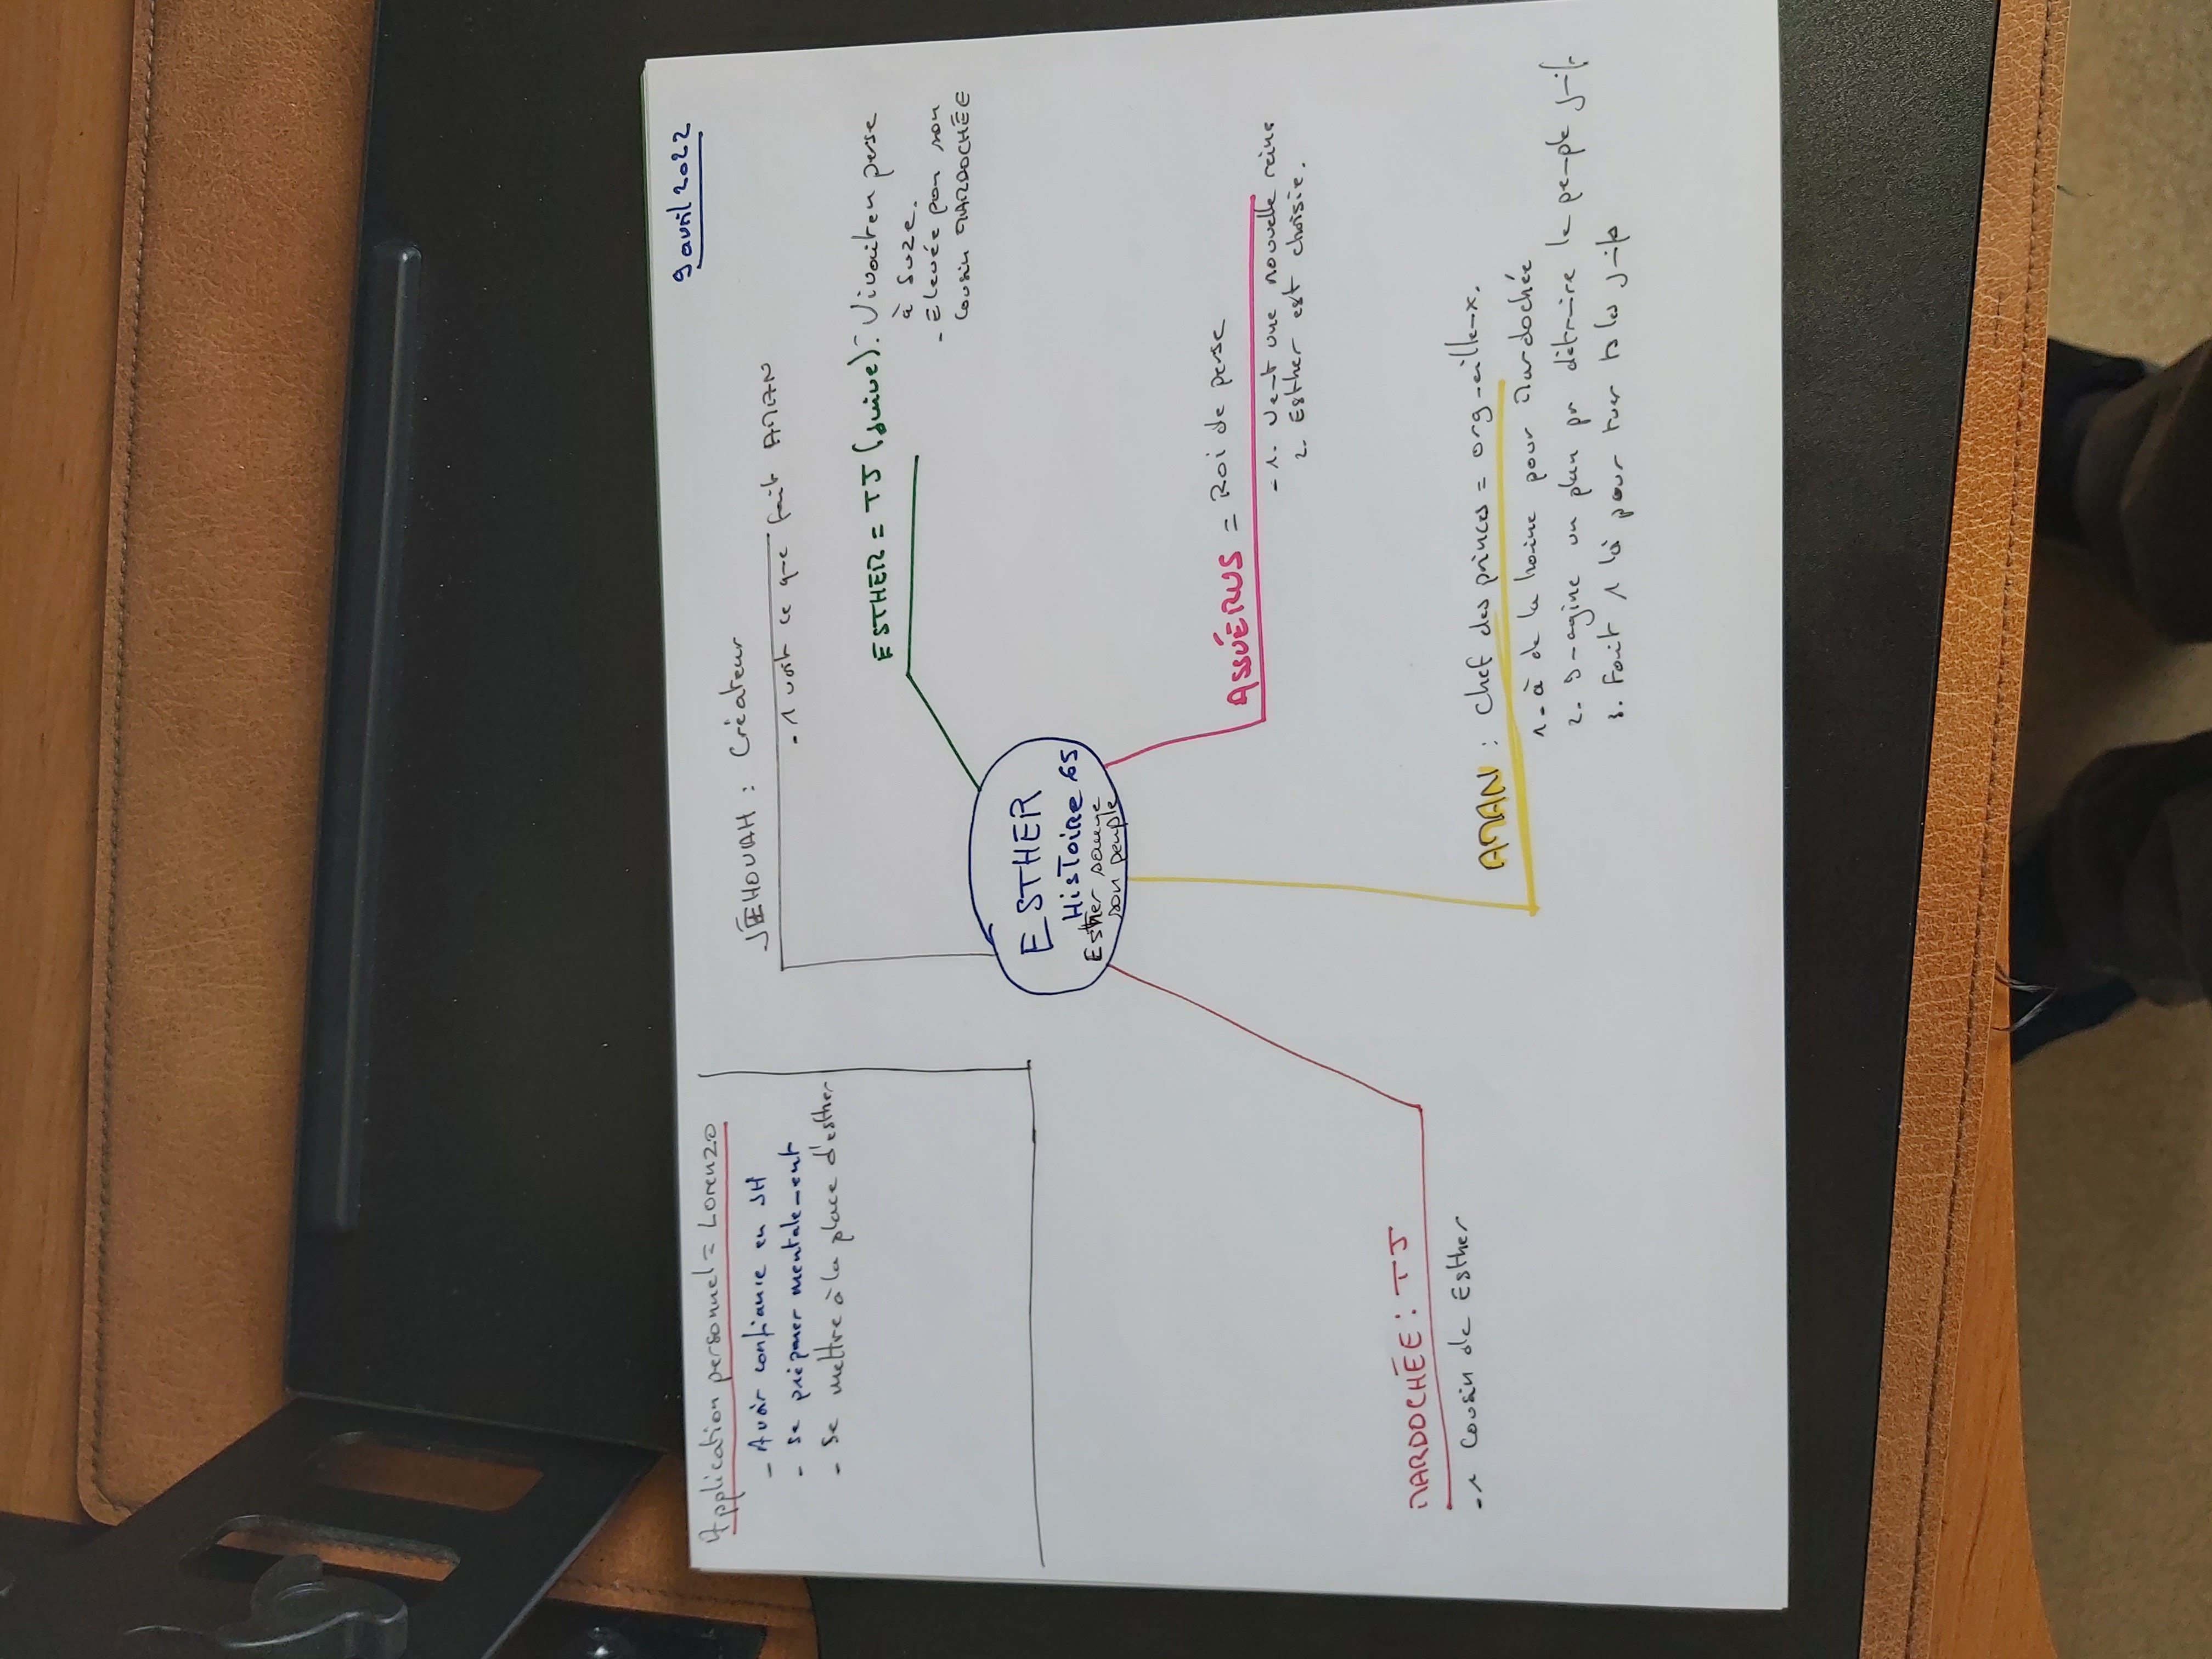 9 avril 2022
Application personnel = Lorenzo
- Avoir confiance en JH
- se préparer mentalement
- Se mettre à la place d'esther
JÉHOVAH : Créateur
- 1 voit ce que fait AMAN
ESTHER = TJ (juive) : Vivait en perse
à Suze.
- Elevée par son
cousin MARDOCHÉE
ESTHER
HisToire 65
Esther sauve
son peuple
ASSUÉRUS = Roi de perse
- 1. Veut une nouvelle reine
2. Esther est choisie.
MARDOCHÉE : TJ
- 1 Cousin de Esther
AMAN : Chef des princes = orgueilleux.
1. à de la haine pour Mardochée
2. Imagine un plan pr détruire le peuple juif
3. Fait 1 loi pour tuer ts les juifs